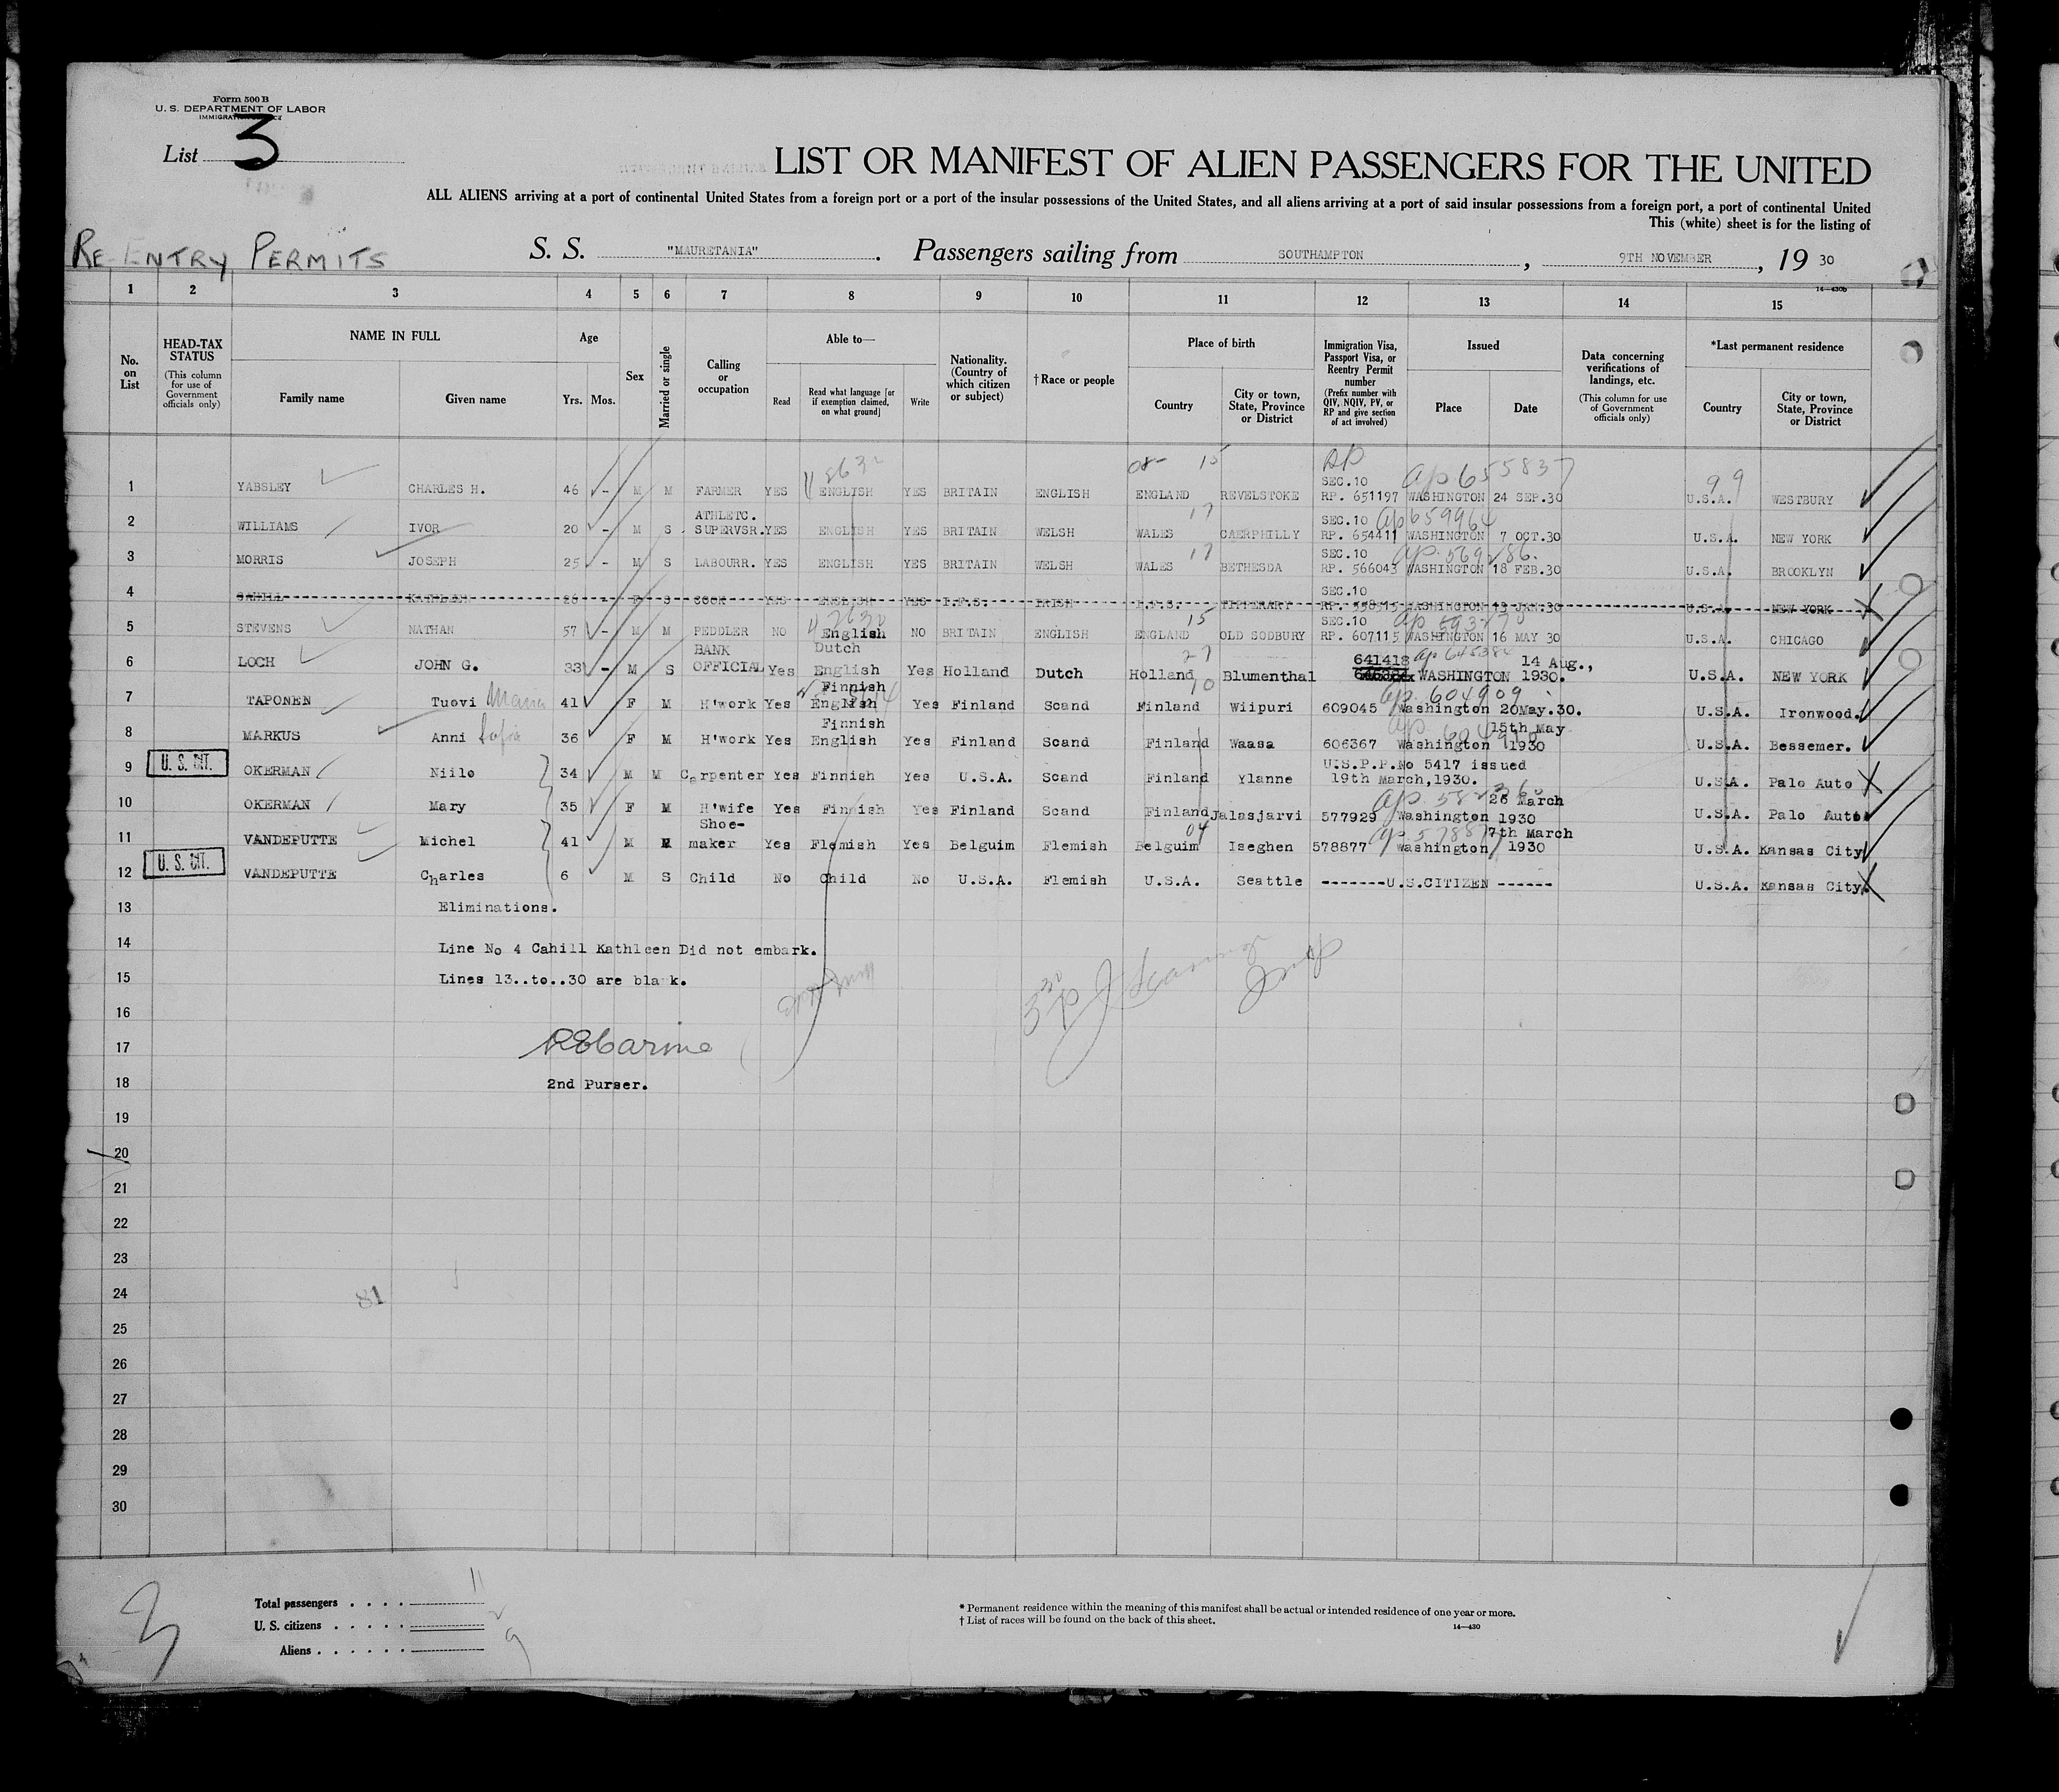 Form 500 B
U. S. DEPARTMENT OF LABOR
List 3
LIST OR MANIFEST OF ALIEN PASSENGERS FOR THE UNITED
ALL ALIENS arriving at a port of continental United States from a foreign port or a port of the insular possessions of the United States, and all aliens arriving at a port of said insular possessions from a foreign port, a port of continental United
This (white) sheet is for the listing of
RE-ENTRY PERMITS
S. S. "MAURETANIA". Passengers sailing from SOUTHAMPTON, 9TH NOVEMBER, 19 30
14—430b
1 2 3 4 5 6 7 8 9 10 11 12 13 14 15
No. on List
HEAD-TAX STATUS (This column for use of Government officials only)
NAME IN FULL Family name Given name
Age Yrs. Mos.
Sex
Married or single
Calling or occupation
Able to— Read Read what language [or if exemption claimed, on what ground] Write
Nationality. (Country of which citizen or subject)
†Race or people
Place of birth Country City or town, State, Province or District
Immigration Visa, Passport Visa, or Reentry Permit number (Prefix number with QIV, NQIV, PV, or RP and give section of act involved)
Issued Place Date
Data concerning verifications of landings, etc. (This column for use of Government officials only)
*Last permanent residence Country City or town, State, Province or District
1 YABSLEY CHARLES H. 46 - M M FARMER YES ENGLISH YES BRITAIN ENGLISH ENGLAND REVELSTOKE SEC.10 RP. 651197 WASHINGTON 24 SEP.30 ap 655837 U.S.A. WESTBURY
2 WILLIAMS IVOR 20 - M S ATHLETC. SUPERVSR. YES ENGLISH YES BRITAIN WELSH WALES CAERPHILLY SEC.10 RP. 654411 WASHINGTON 7 OCT.30 ap 659964 U.S.A. NEW YORK
3 MORRIS JOSEPH 25 - M S LABOURR. YES ENGLISH YES BRITAIN WELSH WALES BETHESDA SEC.10 RP. 566043 WASHINGTON 18 FEB.30 U.S.A. BROOKLYN
4 CAHILL KATHLEEN 26 - F S COOK YES ENGLISH YES I.F.S. IRISH I.F.S. TIPPERARY SEC.10 WASHINGTON 13 JAN.30 U.S.A. NEW YORK
5 STEVENS NATHAN 57 - M M PEDDLER NO English NO BRITAIN ENGLISH ENGLAND OLD SODBURY SEC.10 RP. 607115 WASHINGTON 16 MAY 30 U.S.A. CHICAGO
6 LOCH JOHN G. 33 - M S BANK OFFICIAL Yes Dutch English Yes Holland Dutch Holland Blumenthal 641418 WASHINGTON 14 Aug., 1930. U.S.A. NEW YORK
7 TAPONEN Tuovi Maria 41 F M H'work Yes Finnish English Yes Finland Scand Finland Wiipuri 609045 Washington 20May.30. ap. 604909 U.S.A. Ironwood.
8 MARKUS Anni Sofia 36 F M H'work Yes Finnish English Yes Finland Scand Finland Waasa 606367 Washington 15th May 1930 U.S.A. Bessemer.
9 U. S. CIT. OKERMAN Niilo 34 M M Carpenter Yes Finnish Yes U.S.A. Scand Finland Ylanne U.S.P.P.No 5417 issued 19th March,1930. U.S.A. Palo Auto
10 OKERMAN Mary 35 F M H'wife Yes Finnish Yes Finland Scand Finland Jalasjarvi 577929 Washington 26 March 1930 U.S.A. Palo Auto
11 VANDEPUTTE Michel 41 M M Shoe-maker Yes Flemish Yes Belguim Flemish Belguim Iseghen 578877 Washington 7th March 1930 U.S.A. Kansas City
12 U. S. CIT. VANDEPUTTE Charles 6 M S Child No Child No U.S.A. Flemish U.S.A. Seattle -------U.S.CITIZEN ------ U.S.A. Kansas City.
13 Eliminations.
14 Line No 4 Cahill Kathleen Did not embark.
15 Lines 13..to..30 are blank.
16
17
18 2nd Purser.
19
20
21
22
23
24 81
25
26
27
28
29
30
Total passengers . . . . 11
U. S. citizens . . . . . 2
Aliens . . . . . . 9
* Permanent residence within the meaning of this manifest shall be actual or intended residence of one year or more.
† List of races will be found on the back of this sheet.
14—430